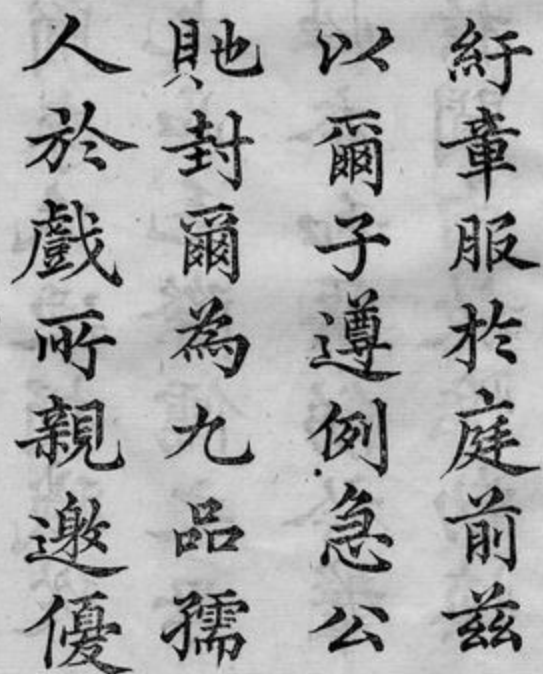 紆章服於庭前茲
以爾子遵例急公
貤封爾為九品孺
人於戲所親邀優